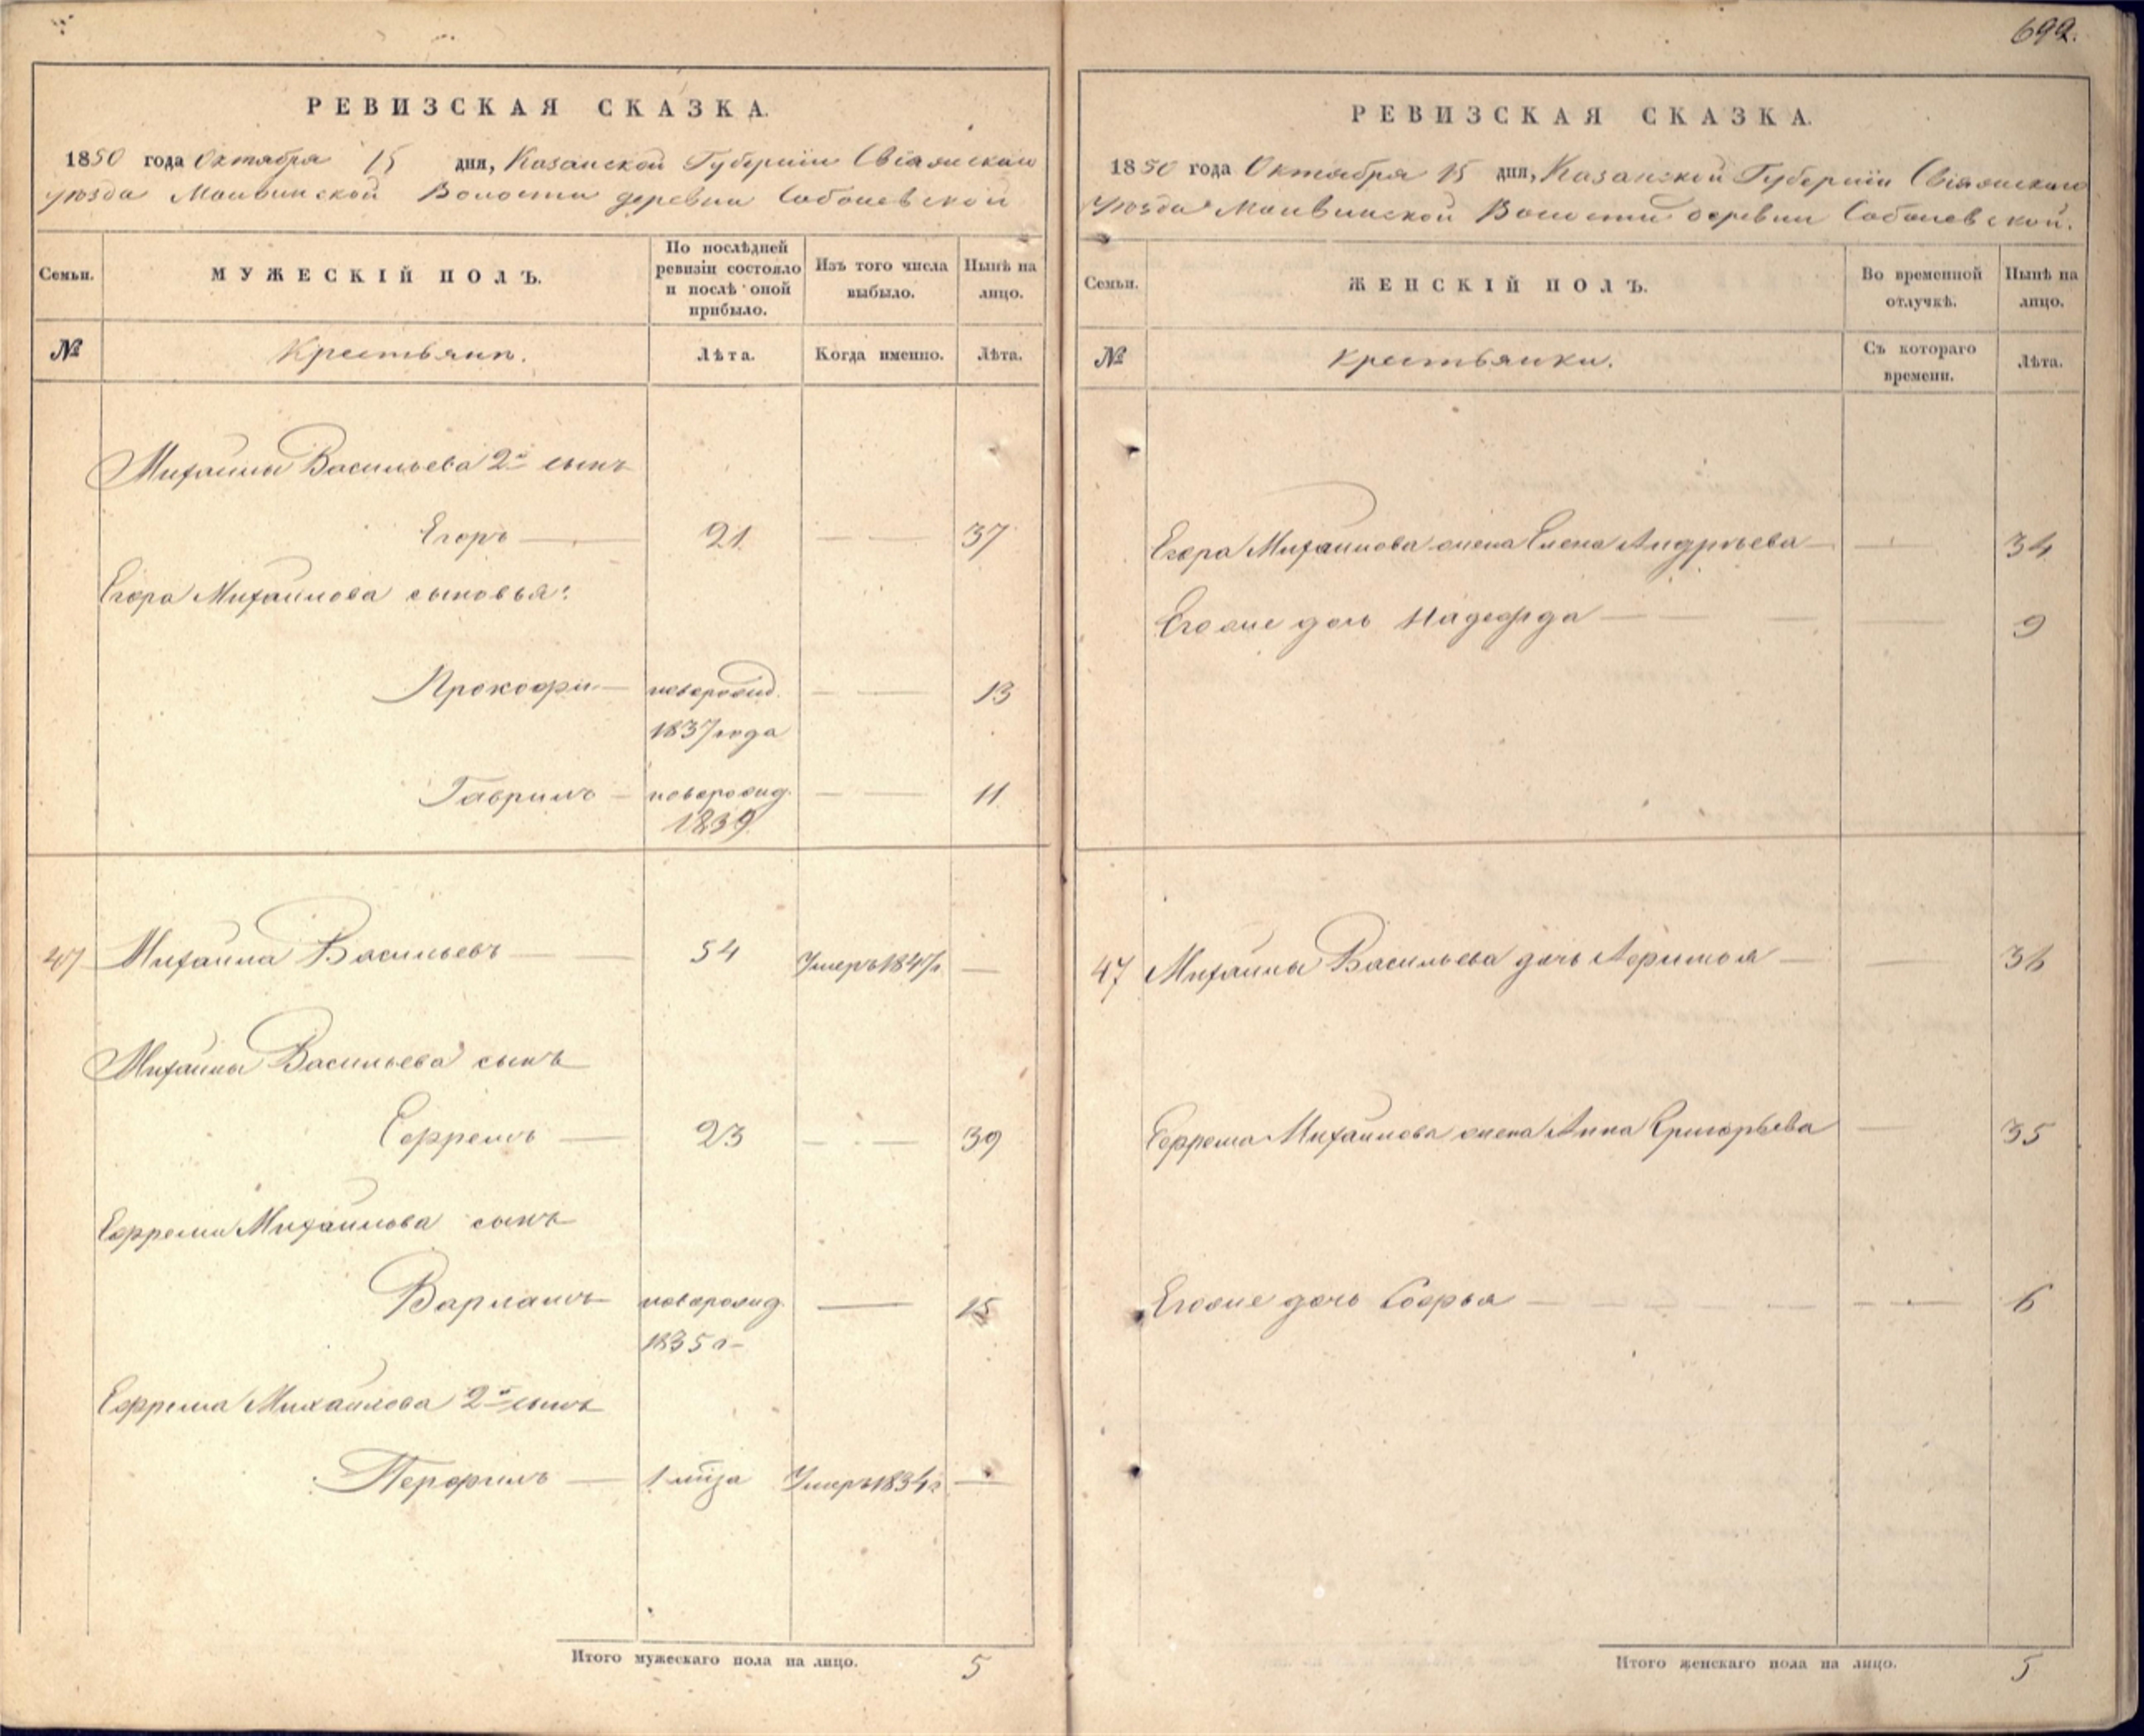 692.
РЕВИЗСКАЯ СКАЗКА.
1850 года Октября 15 дня, Казанской Губерніи Свіяжскаго
уѣзда Маквинской Волости деревни Соболевской
Семьи.
МУЖЕСКІЙ ПОЛЪ.
По послѣдней
ревизіи состояло
и послѣ оной
прибыло.
Изъ того числа
выбыло.
Нынѣ на
лицо.
№
Крестьяне.
Лѣта.
Когда именно.
Лѣта.
Михайлы Васильева 2й сынъ
Егоръ 21 37
Егора Михайлова сыновья:
Прокофи новорожд. 13
1837 года
Гаврилъ новорожд. 11
1839
47 Михайла Васильевъ 54 Умеръ 1847г
Михайлы Васильева сынъ
Ефремъ 23 39
Ефрема Михайлова сынъ
Варламъ новорожд. 15
1835 г
Ефрема Михайлова 2й сынъ
Перфилъ 1 Умеръ 1834г
Итого мужескаго пола на лицо. 5
РЕВИЗСКАЯ СКАЗКА.
1850 года Октября 15 дня, Казанской Губерніи Свіяжскаго
Уѣзда Маквинской Волости деревни Соболевской.
Семьи.
ЖЕНСКІЙ ПОЛЪ.
Во временной
отлучкѣ.
Нынѣ на
лицо.
№
Крестьянки.
Съ котораго
времени.
Лѣта.
Егора Михайлова жена Елена Андрѣева 34
Егоже дочь Надежда 9
47 Михайлы Васильева дочь Афимья 36
Ефрема Михайлова жена Анна Григорьева 35
Егоже дочь Софья 6
Итого женскаго пола на лицо. 5